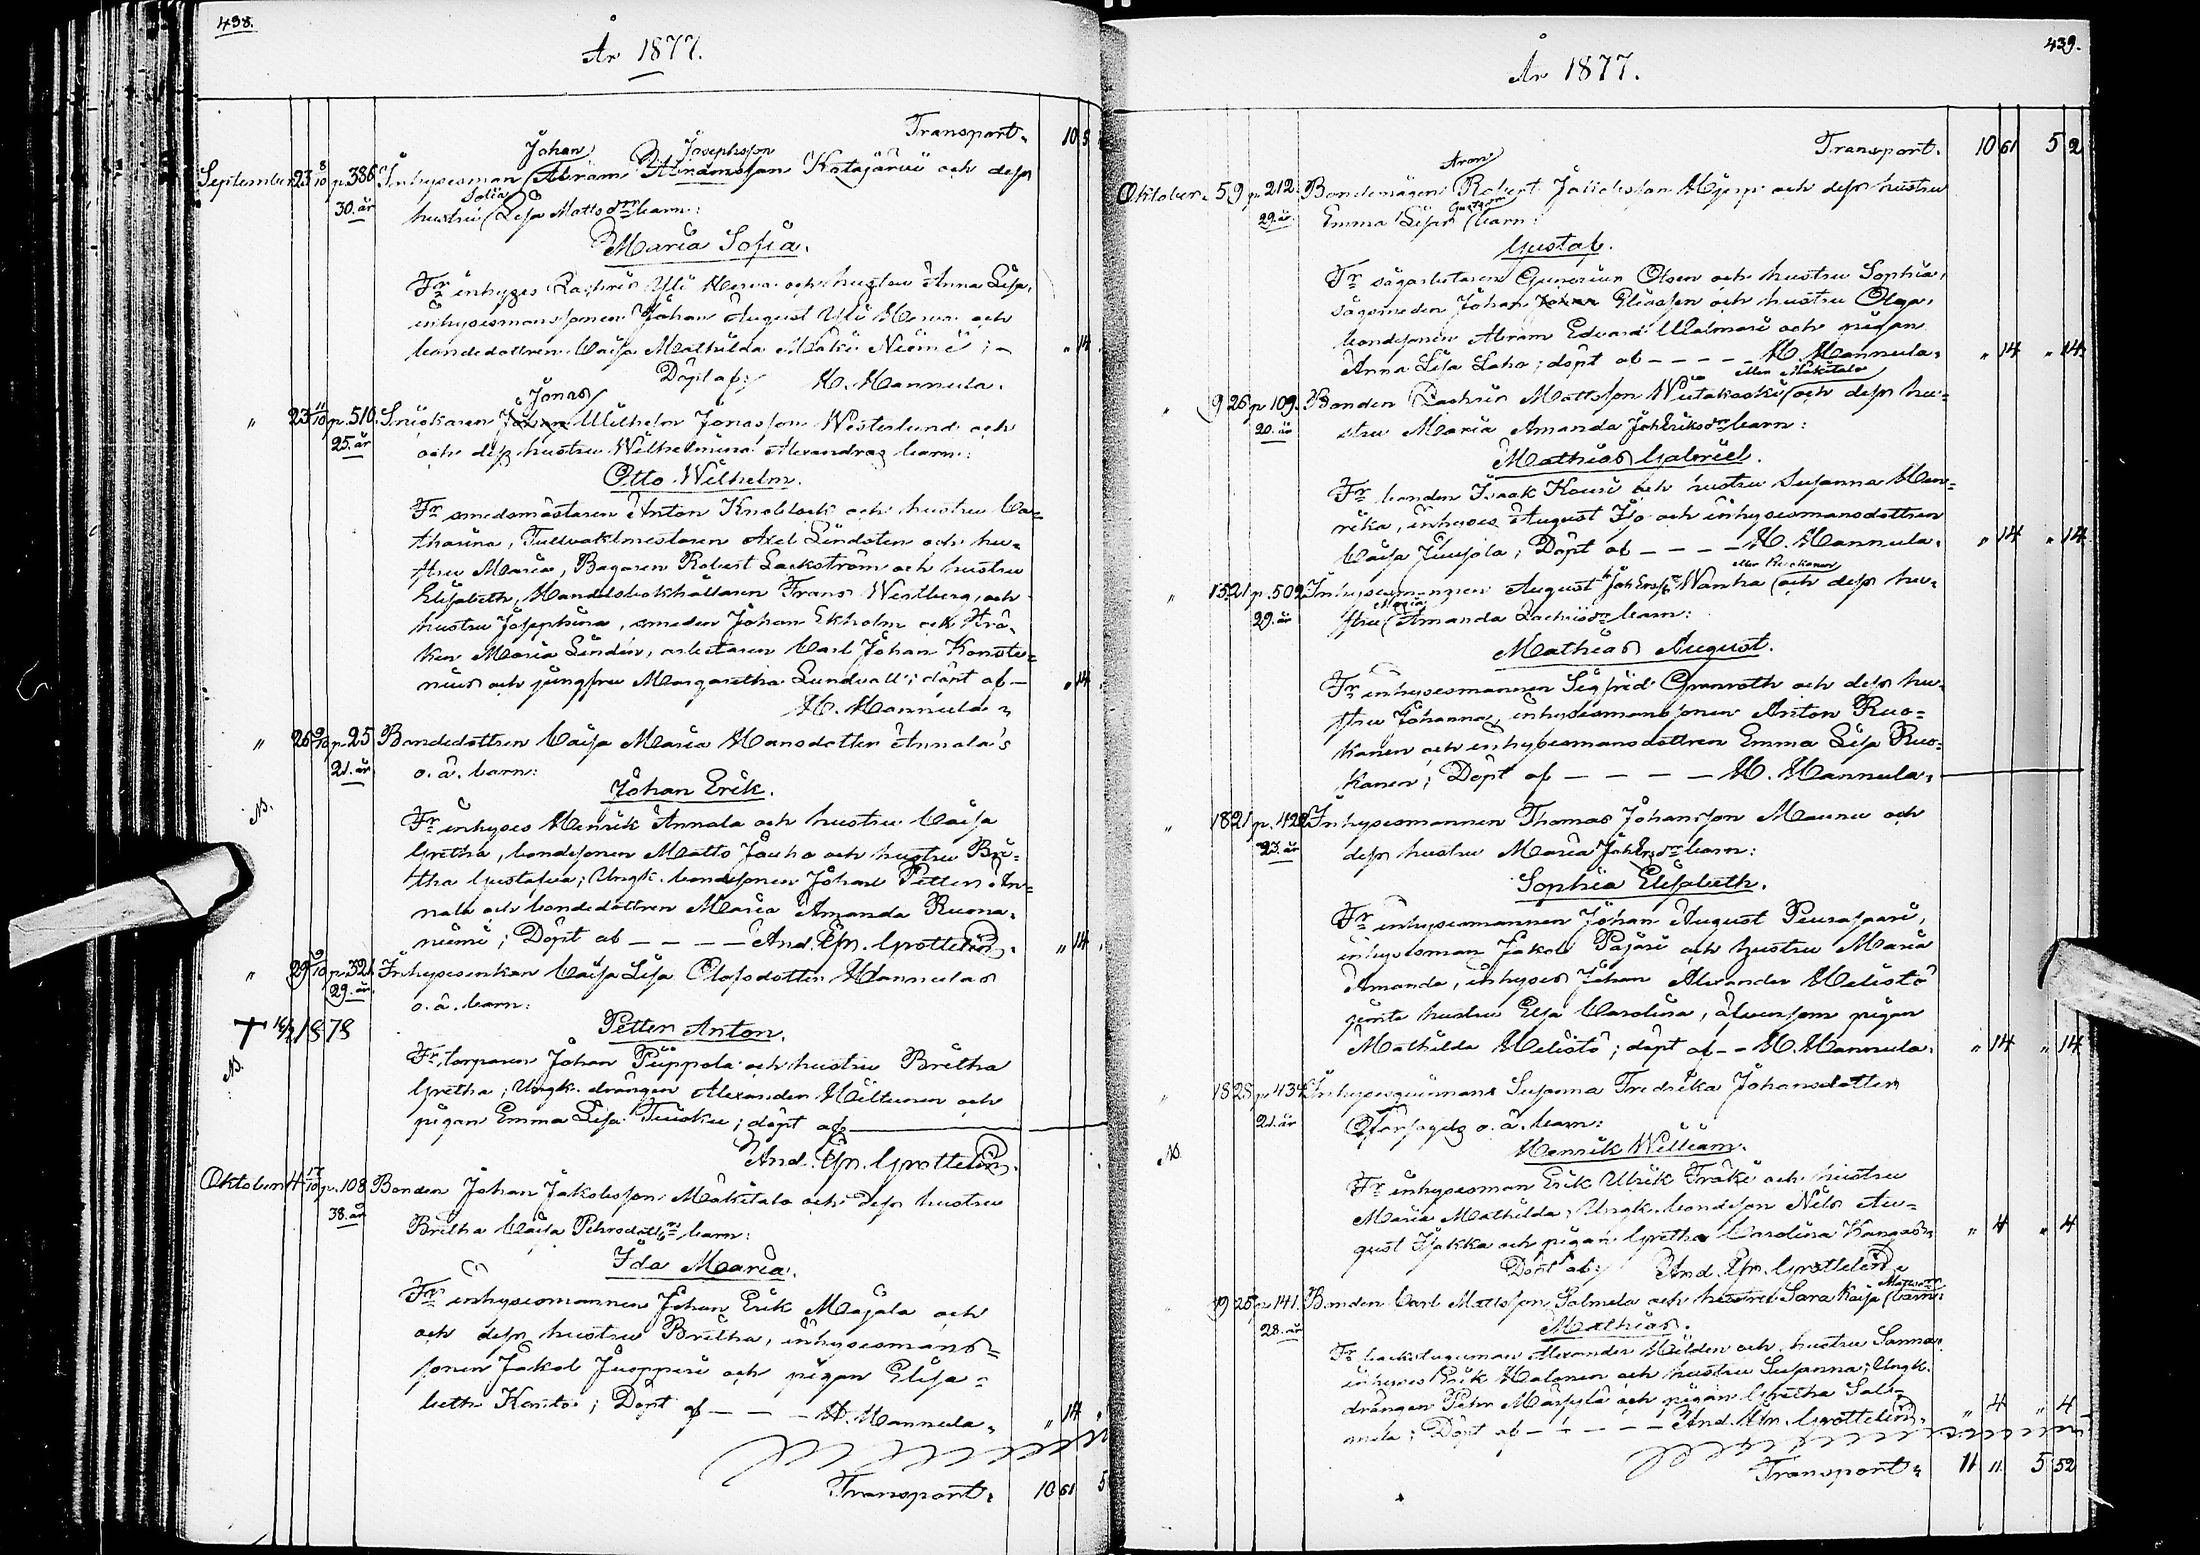 438.
År 1877.
Transport.
Johan Josephsson
September 23 8/10 p. 386 Inhysesman Abram Abramsson Katajärvi och dess
30. år Sofia hustru Lisa Matts dr barn:
Maria Sofia.
Fr inhyses Zachris Yli Herva och hustru Anna Lisa,
inhysesmanssonen Johan August Yli Herva och
bondedottren Caisa Mathilda Mäki Niemi; „ 14
Döpt af: H. Hannula.
Jonas
„ 23 11/10 p. 510. Snickaren Johan Wilhelm Jonasson Westerlund och
25. år och dess hustru Wilhelmina Alexandras barn:
Otto Wilhelm.
Fr smedsmästaren Anton Knoblock och hustru Ca-
tharina, Tullvaktmästaren Axel Lindsten och hu-
stru Maria, Bagaren Robert Lackström och hustru
Elisabeth, Handelsbokhållaren Frans Westberg, och
hustru Josephina, smeden Johan Ekholm och Frö-
ken Maria Lindén, arbetaren Carl Johan Konste-
nius och jungfru Margaretha Lundvall; döpt af — „ 14
H. Hannula.
„ 26 9/10 p. 25 Bondedottren Caisa Maria Hansdotter Annala's
21. år o. ä. barn:
Johan Erik.
N.
Fr inhyses Henrik Annala och hustru Caisa
Gretha, bondesonen Matts Jauho och hustru Bri-
tha Gustafva; Ungk. bondesonen Johan Petter An-
nala och bondedottren Maria Amanda Ruona-
niemi; Döpt af — — — — And. Efr. Grottelin. „ 14
„ 29 9/10 p. 321. Inhysesenkan Caisa Lisa Olofsdotter Hannulas
29. år. o. ä. barn:
† 1878
Petter Anton.
N.
Fr torparen Johan Piippola och hustru Britha
Gretha; Ungk. drängen Alexander Hiltunen och
pigan Emma Lisa Tuisku; döpt af
And. Efr. Grottelin.
Oktober 4 17/10 p. 108 Bonden Johan Jakobsson Mäkitalo och dess hustru
38. år Britha Caisa Pehrsdottr barn:
Ida Maria.
Fr inhysesmannen Johan Erik Majala och
och dess hustru Britha, inhysesmans-
sonen Jakob Juopperi och pigan Elisa-
beth Kenttä; Döpt af — — — H. Hannula. „ 14
Transport. 10 61 5
439.
År 1877.
Transport. 10 61 5 2
Aron
Oktober. 5 9 p. 212. Bondemågen Robert Jakobsson Hjerpe och dess hustru
29. år. Emma Lisas barn:
Gustaf.
Fr sågarbetaren Gunerius Olsen och hustru Sophia,
sågsmeden Johan Eliasson och hustru Olga,
bondsonen Abram Edvard Malmari och pigan
Anna Lisa Laho; döpt af — — — — H. Hannula. „ 14 „ 14
eller Mäkitalo
„ 9 26 p. 109. Bonden Zachris Mattsson Wiitakoski och dess hu-
20. år stru Maria Amanda Joh Eriks dr barn:
Mathias Gabriel.
Fr bonden Isaak Kouri och hustru Susanna Hen-
rika, inhyses August Ijo och inhysesmansdottren
Caisa Juujola; Döpt af — — — — H. Hannula. „ 14 „ 14
„ 15 21 p. 502 Inhysesmannen August Joh Wanha och dess hu-
29. år Maria stru Amanda Zachris dr barn:
Mathias August.
Fr inhysesmannen Sigfrid Granroth och dess hu-
stru Johanna, inhysesmanssonen Anton Ruo-
kanen och inhysesmansdottren Emma Lisa Ruo-
kanen; Döpt af — — — — H. Hannula.
„ 18 21 p. 428 Inhysesmannen Thomas Johansson Maunu och
23. år dess hustru Maria Joh dr barn:
Sophia Elisabeth.
Fr inhysesmannen Johan August Peurasaari,
inhysesman Jakob Pajari och hustru Maria
Amanda, inhyses Johan Alexander Helistö
jemte hustru Elsa Carolina, äfvensom pigan
Mathilda Helistö; döpt af — H. Hannula. „ 14 „ 14
„ 18 28 p. 434 Inhyseqvinnans Susanna Fredrika Johansdotter
21. år o. ä. barn:
N.
Henrik William.
Fr inhysesman Erik Ulrik Fräki och hustru
Maria Mathilda; Ungk. bondeson Nils Au-
gust Isakka och pigan Gretha Carolina Kangas „ 4 „ 4
Döpt af: And. Efr. Grottelin.
Mattsdr
„ 19 25 p. 141. Bonden Carl Mattsson Salmela och hustru Sara Kaisa barn:
28. år Mathias.
Fr backstuguman Alexander Hilden och hustru Sanna,
inhyses Erik Halonen och hustru Susanna; Ungk.
drängen Pehr Marsylä och pigan Gretha Sal-
mela; Döpt af — — — — And. Efr. Grottelin. „ 4 „ 4
Transport. 11 11 5 52